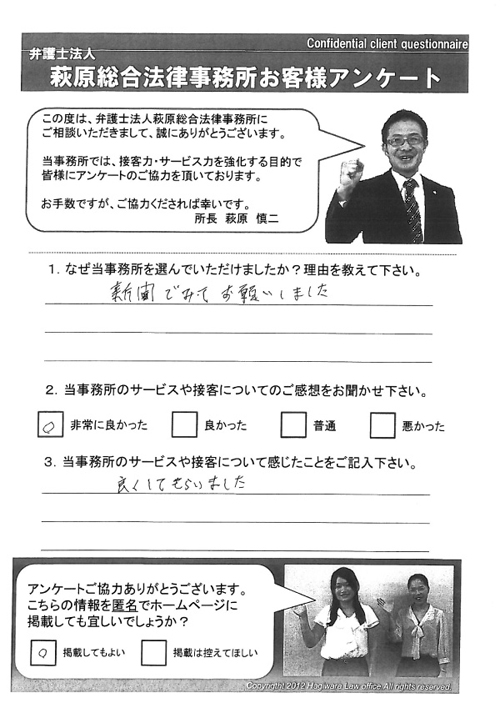 Confidential client questionnaire
弁護士法人
萩原総合法律事務所お客様アンケート
この度は、弁護士法人萩原総合法律事務所に
ご相談いただきまして、誠にありがとうございます。
当事務所では、接客力・サービス力を強化する目的で
皆様にアンケートのご協力を頂いております。
お手数ですが、ご協力くだされば幸いです。
所長 萩原 慎二
1．なぜ当事務所を選んでいただけましたか？理由を教えて下さい。
新聞でみてお願いしました
2．当事務所のサービスや接客についてのご感想をお聞かせ下さい。
非常に良かった 良かった 普通 悪かった
3．当事務所のサービスや接客について感じたことをご記入下さい。
良くしてもらいました
アンケートご協力ありがとうございます。
こちらの情報を匿名でホームページに
掲載しても宜しいでしょうか？
掲載してもよい 掲載は控えてほしい
Copyright 2012 Hagiwara Law office.All rights reserved.